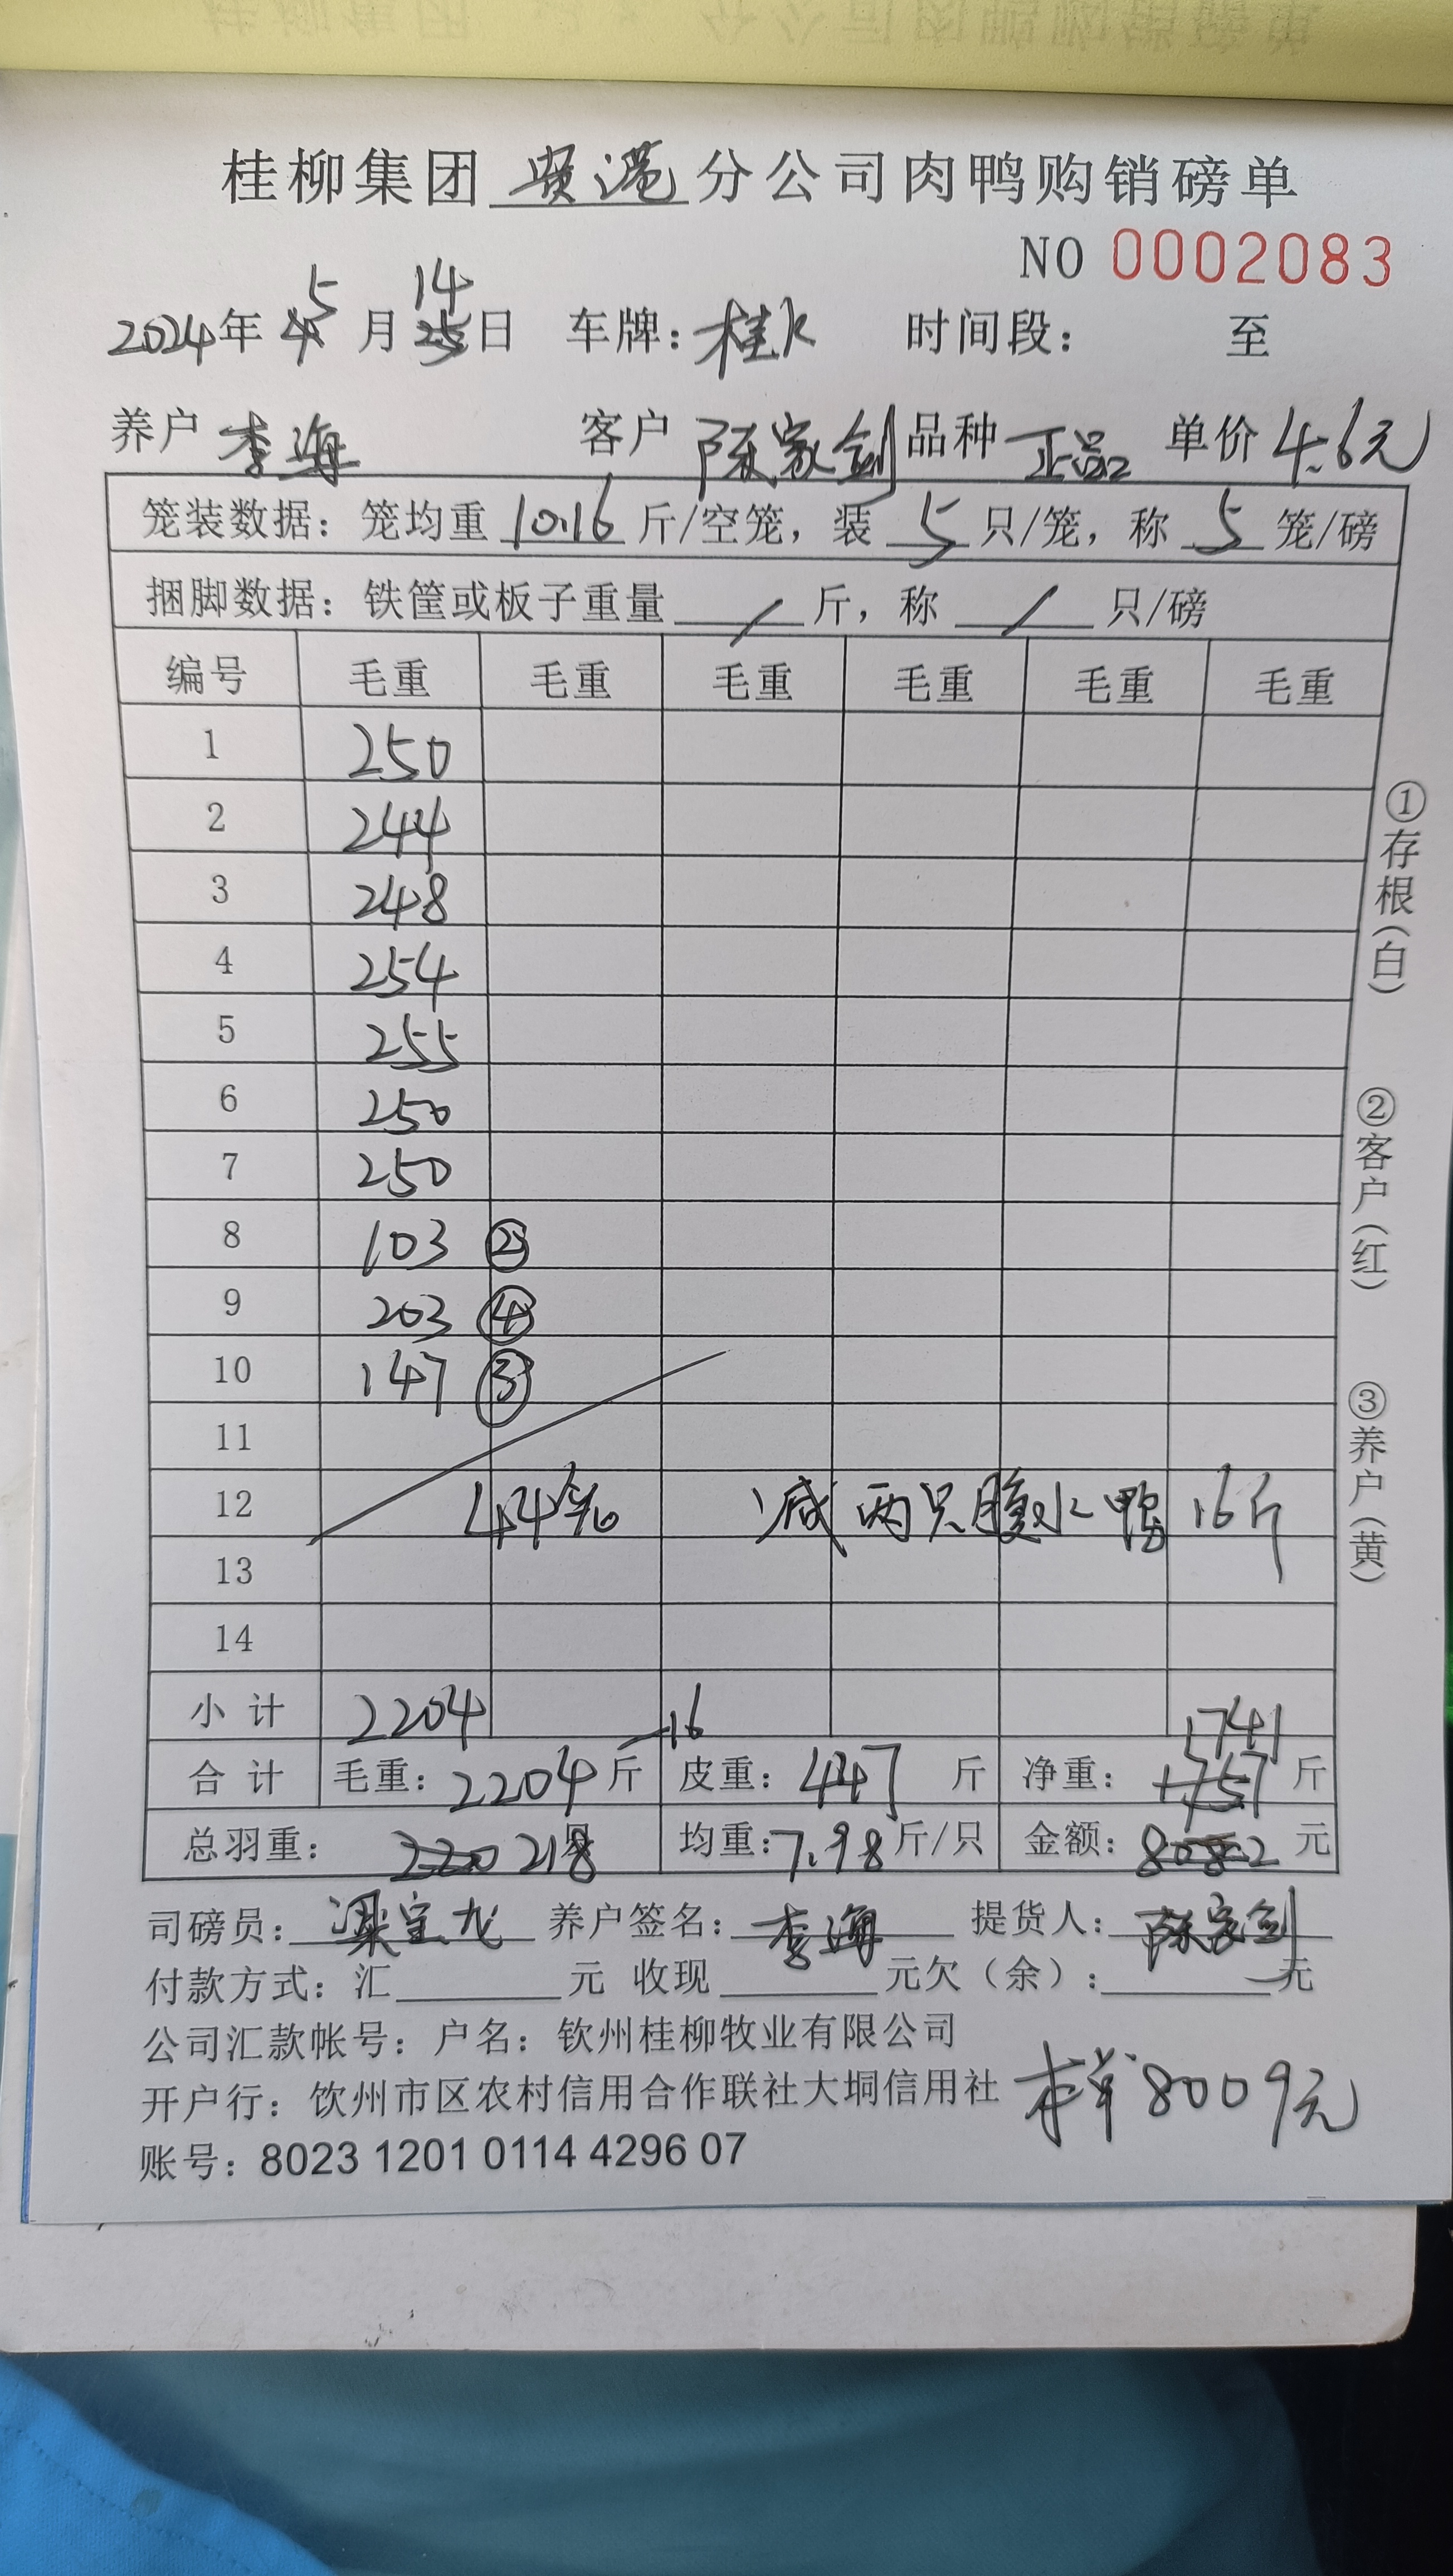 桂柳集团贵港分公司肉鸭购销磅单
NO 0002083
5 14
2024年 月 日 车牌：桂K 时间段： 至
养户 李海 客户 陈家剑 品种 正品 单价 4.6元
笼装数据：笼均重 10.16 斤/空笼，装 5 只/笼，称 5 笼/磅
捆脚数据：铁筐或板子重量 / 斤，称 / 只/磅
编号 毛重 毛重 毛重 毛重 毛重 毛重
1 250
2 244
3 248
4 254
5 255
6 250
7 250
8 103 ②
9 203 ④
10 147 ③
11
12 44笼 减两只腹水鸭 16斤
13
14
小计 2204 -16 1741
合计 毛重：2204斤 皮重：447 斤 净重：1757 斤
总羽重： 220 218 只 均重：7.98斤/只 金额：8082 元
司磅员：梁宝龙 养户签名：李海 提货人：陈家剑
付款方式：汇 元 收现 元欠（余）： 元
公司汇款帐号：户名：钦州桂柳牧业有限公司
开户行：饮州市区农村信用合作联社大垌信用社
本单8009元
账号：8023 1201 0114 4296 07
①存根（白）
②客户（红）
③养户（黄）